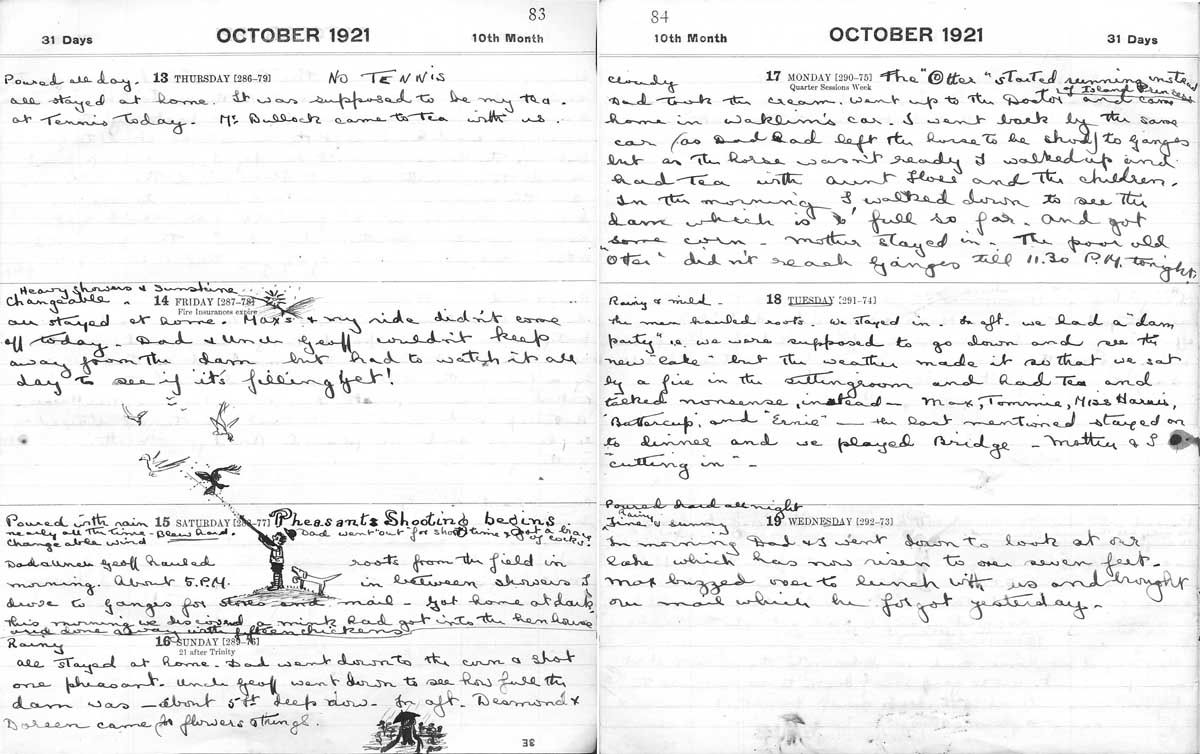 83
31 Days OCTOBER 1921 10th Month
Poured all day. 13 THURSDAY [286-79] NO TENNIS
all stayed at home. It was supposed to be my tea.
at Tennis today. Mr Bullock came to tea with us.
Heavy showers & Sunshine
Changeable " 14 FRIDAY [287-78]
Fire Insurances expire
all stayed at home. Max's & my ride didn't come
off today. Dad & Uncle Geoff wouldn't keep
away from the dam but had to watch it all
day to see if it's filling yet!
Poured with rain 15 SATURDAY [288-77] Pheasants Shooting begins
nearly all the time - Blew hard. Dad went out for short time & got a brace
changeable wind of cocks!
Dad & Uncle Geoff hauled roots from the field in
morning. About 5.P.M. in between showers I
drove to Ganges for stores and mail - Got home at dark
This morning we discovered a mink had got into the henhouse
and done away with fifteen chickens!
Rainy 16 SUNDAY [289-76]
21 after Trinity
all stayed at home. Dad went down to the corn & shot
one pheasant. Uncle Geoff went down to see how full the
dam was - about 5 ft deep now. In aft. Desmond &
Doreen came for flowers & things.
84
10th Month OCTOBER 1921 31 Days
cloudy 17 MONDAY [290-75] The "Otter" started running instead
Quarter Sessions Week of Island Princess
Dad took the cream. went up to the Doctor and came
home in car. I went back by the same
car (as Dad had left the horse to be shod) to Ganges
but as the horse wasn't ready I walked up and
had tea with aunt and the children.
In the morning I walked down to see the
dam which is 6' full so far. and got
some corn - Mother stayed in - The poor old
"Otter" didn't reach Ganges till 11.30 P.M. tonight.
Rainy & mild - 18 TUESDAY [291-74]
The men hauled roots. we stayed in. In aft. we had a "dam
party" i.e. we were supposed to go down and see the
new "lake" but the weather made it so that we sat
by a fire in the sittingroom and had tea and
talked nonsense, instead - Max, Tommie, Miss Harris,
Buttercup, and "Ernie" - the last mentioned stayed on
to dinner and we played Bridge - Mother & I
"cutting in" -
Poured hard all night
Rainy
Fine & sunny 19 WEDNESDAY [292-73]
In morning Dad & I went down to look at our
lake which has now risen to over seven feet.
Max buzzed over to lunch with us and brought
our mail which he forgot yesterday -